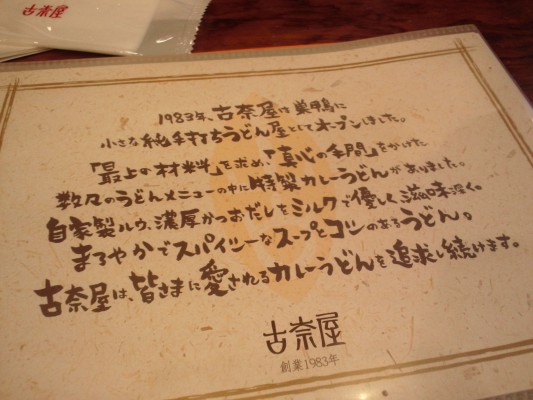 古奈屋
1983年、古奈屋は巣鴨に
小さな純手打ちうどん屋としてオープンしました。
「最上の材料」を求め、「真心の手間」をかけた
数々のうどんメニューの中に特製カレーうどんがありました。
自家製ルウ、濃厚かつおだしをミルクで優しく滋味深く。
まろやかでスパイシーなスープとコシのあるうどん。
古奈屋は、皆さまに愛されるカレーうどんを追求し続けます。
古奈屋
創業1983年